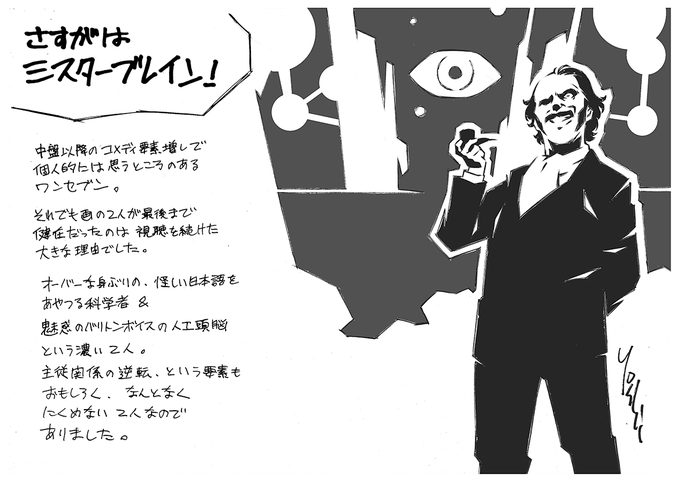 さすがは
ミスターブレイン!
中盤以降のコメディ要素増しで
個人的には思うところのある
ワンセブン。
それでも画の2人が最後まで
健在だったのは視聴を続けた
大きな理由でした。
オーバーな身ぶりの、怪しい日本語を
あやつる科学者 &
魅惑のバリトンボイスの人工頭脳
という濃い2人。
主従関係の逆転、という要素も
おもしろく、なんとなく
にくめない2人なので
ありました。